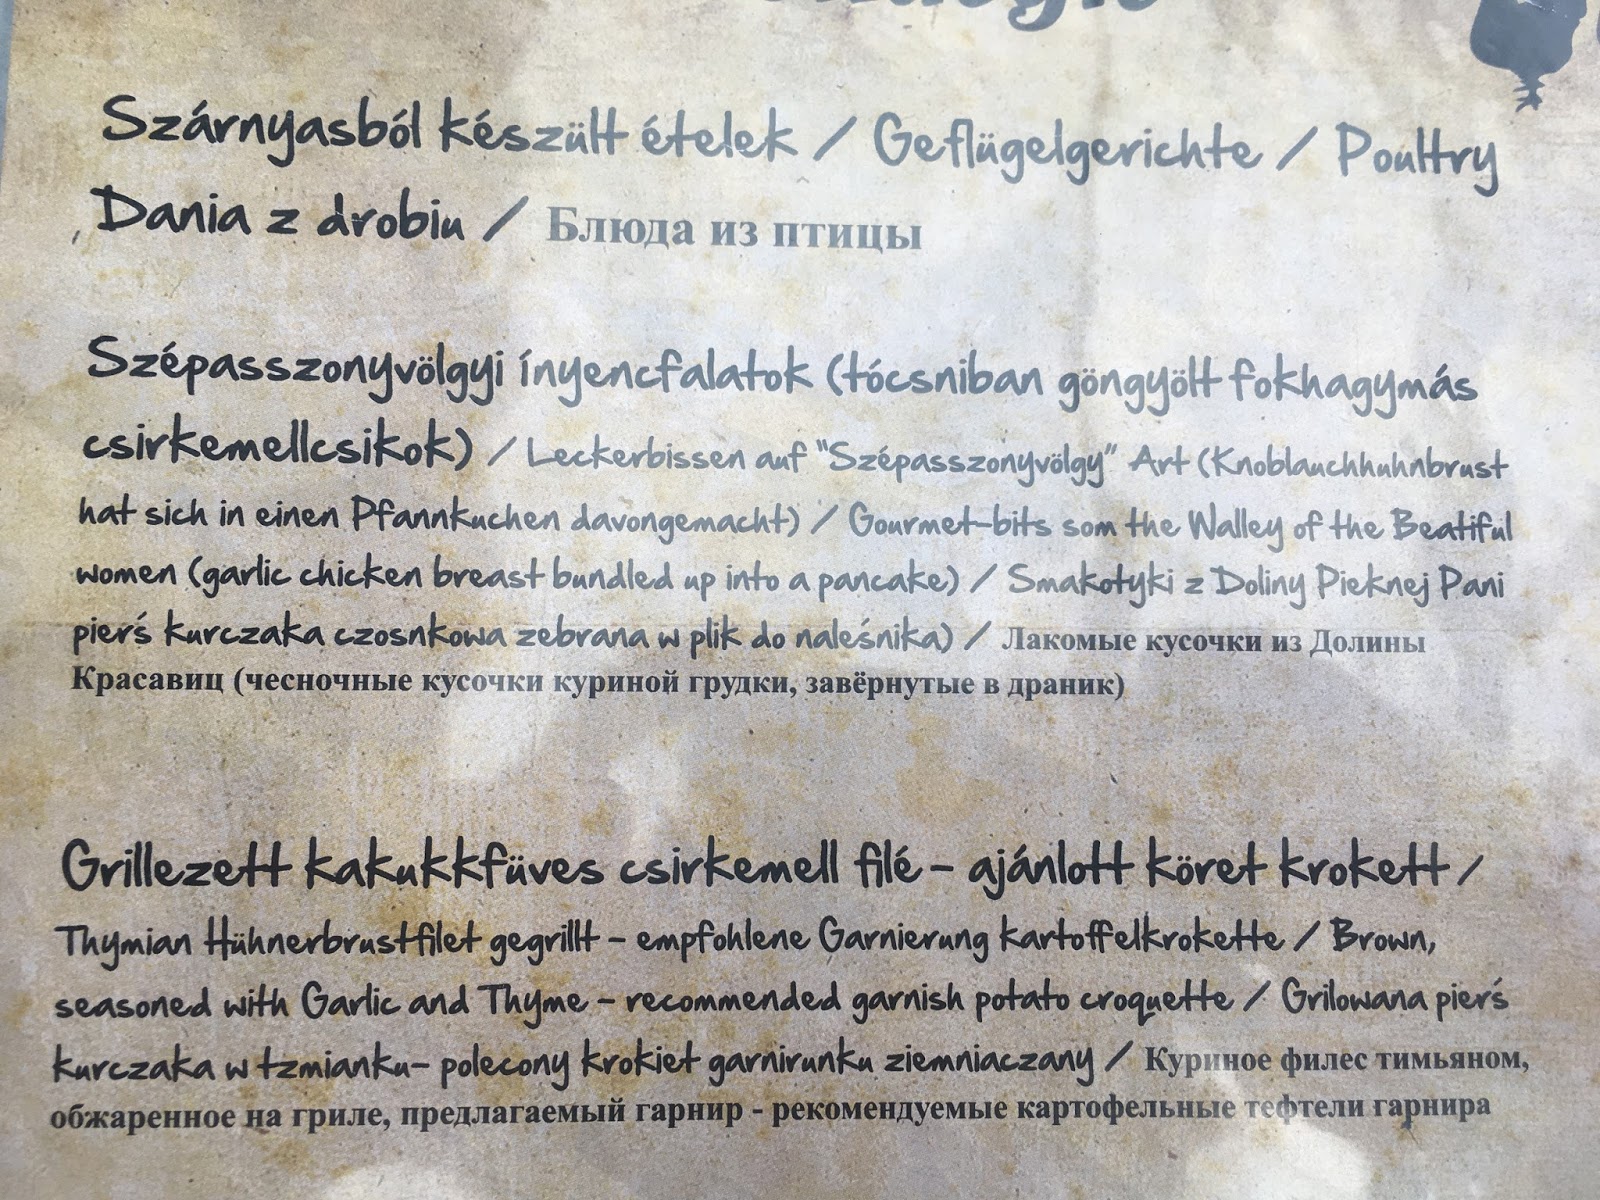 Szárnyasból készült ételek / Geflügelgerichte / Poultry
Dania z drobiu / Блюда из птицы
Szépasszonyvölgyi ínyencfalatok (tócsniban göngyölt fokhagymás
csirkemellcsikok) / Leckerbissen auf "Szépasszonyvölgy" Art (Knoblauchhuhnbrust
hat sich in einen Pfannkuchen davongemacht) / Gourmet-bits som the Walley of the Beatiful
women (garlic chicken breast bundled up into a pancake) / Smakotyki z Doliny Pieknej Pani
pierś kurczaka czosnkowa zebrana w plik do naleśnika) / Лакомые кусочки из Долины
Красавиц (чесночные кусочки куриной грудки, завёрнутые в драник)
Grillezett kakukkfüves csirkemell filé - ajánlott köret krokett /
Thymian Hühnerbrustfilet gegrillt - empfohlene Garnierung kartoffelkrokette / Brown,
seasoned with Garlic and Thyme - recommended garnish potato croquette / Grilowana pierś
kurczaka w tzmianku- polecony krokiet garnirunku ziemniaczany / Куриное филес тимьяном,
обжаренное на гриле, предлагаемый гарнир - рекомендуемые картофельные тефтели гарнира